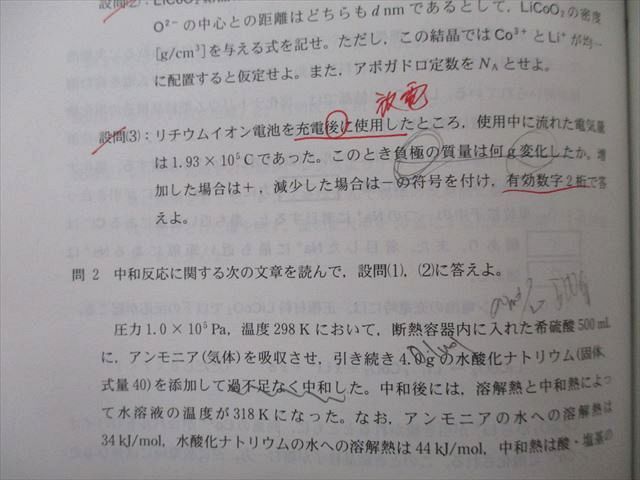 設問(2): LiCoO₂の
O²⁻の中心との距離はどちらも d nm であるとして, LiCoO₂の密度
[g/cm³]を与える式を記せ。ただし, この結晶では Co³⁺とLi⁺が均一
に配置すると仮定せよ。また, アボガドロ定数を N_A とせよ。
放電
設問(3): リチウムイオン電池を充電後に使用したところ, 使用中に流れた電気量
は 1.93 × 10⁵ C であった。このとき負極の質量は何 g 変化したか。増
加した場合は+, 減少した場合は-の符号を付け, 有効数字2桁で答
えよ。
問 2 中和反応に関する次の文章を読んで, 設問(1), (2)に答えよ。
圧力 1.0 × 10⁵ Pa, 温度 298 K において, 断熱容器内に入れた希硫酸 500 mL
に, アンモニア(気体)を吸収させ, 引き続き 4.0 g の水酸化ナトリウム(固体,
0.1mol
式量 40)を添加して過不足なく中和した。中和後には, 溶解熱と中和熱によっ
て水溶液の温度が 318 K になった。なお, アンモニアの水への溶解熱は
34 kJ/mol, 水酸化ナトリウムの水への溶解熱は 44 kJ/mol, 中和熱は酸・塩基の